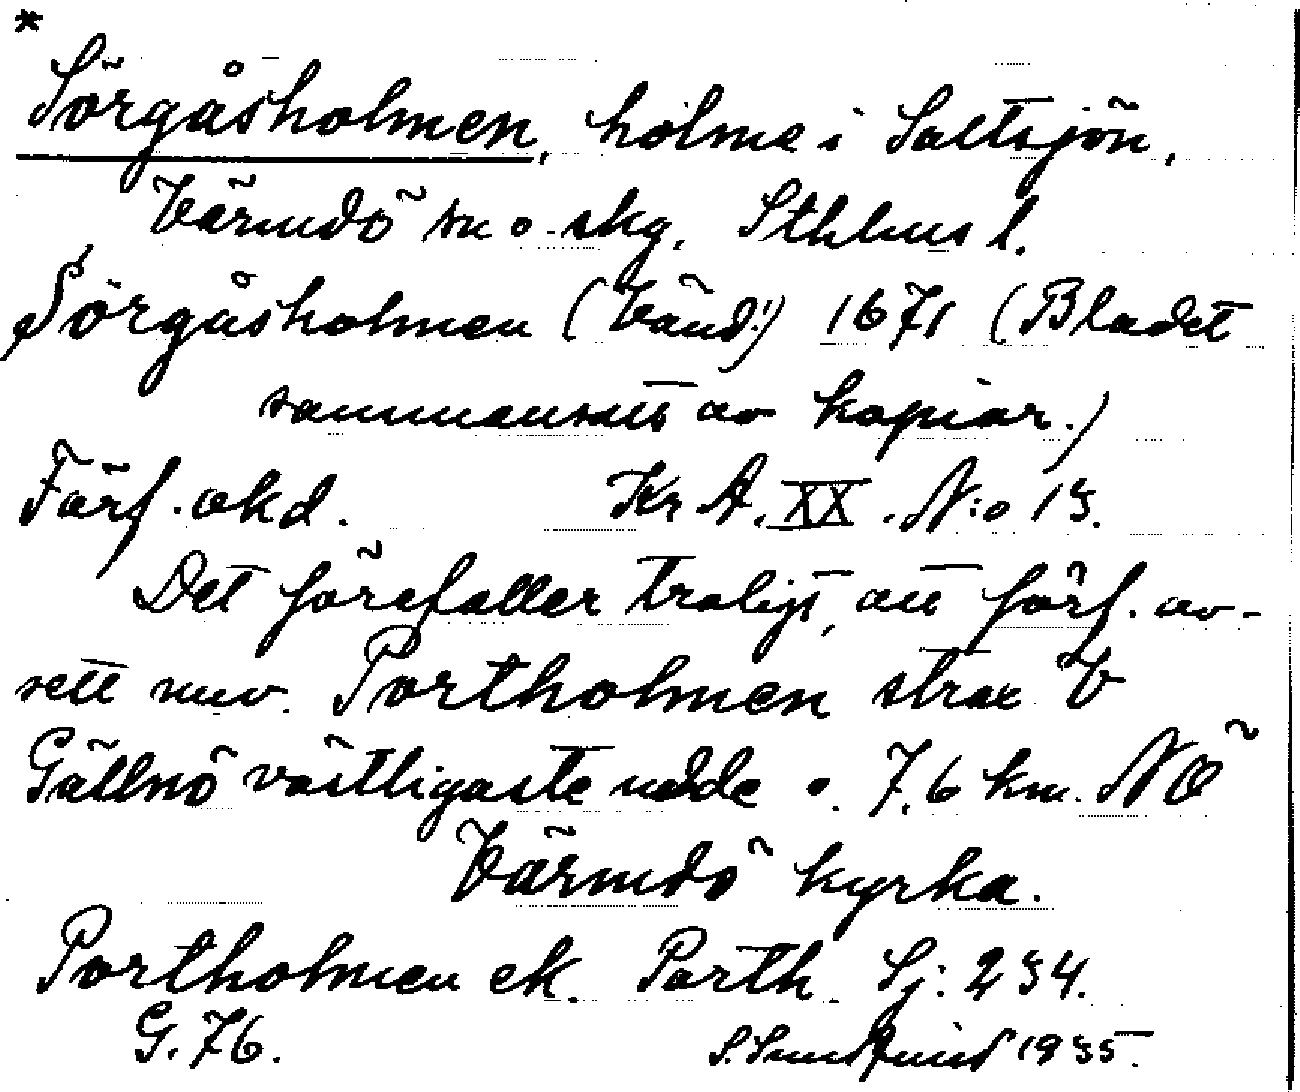 *
Sörgåsholmen, holme i Saltsjön,
Värmdö sn o. skg. Sthlms l.
Sörgåsholmen (Vänd!) 1671 (Bladet
sammansatts av kopior.)
Förf. okd. Kr A. XX. N:o 13.
Det förefaller troligt, att förf. av-
sett nuv. Portholmen strax V
Gällnö västligaste udde o. 7,6 km. NÖ
Värmdö kyrka.
Portholmen ek. Porth Sj: 234.
G. 76. 1935.